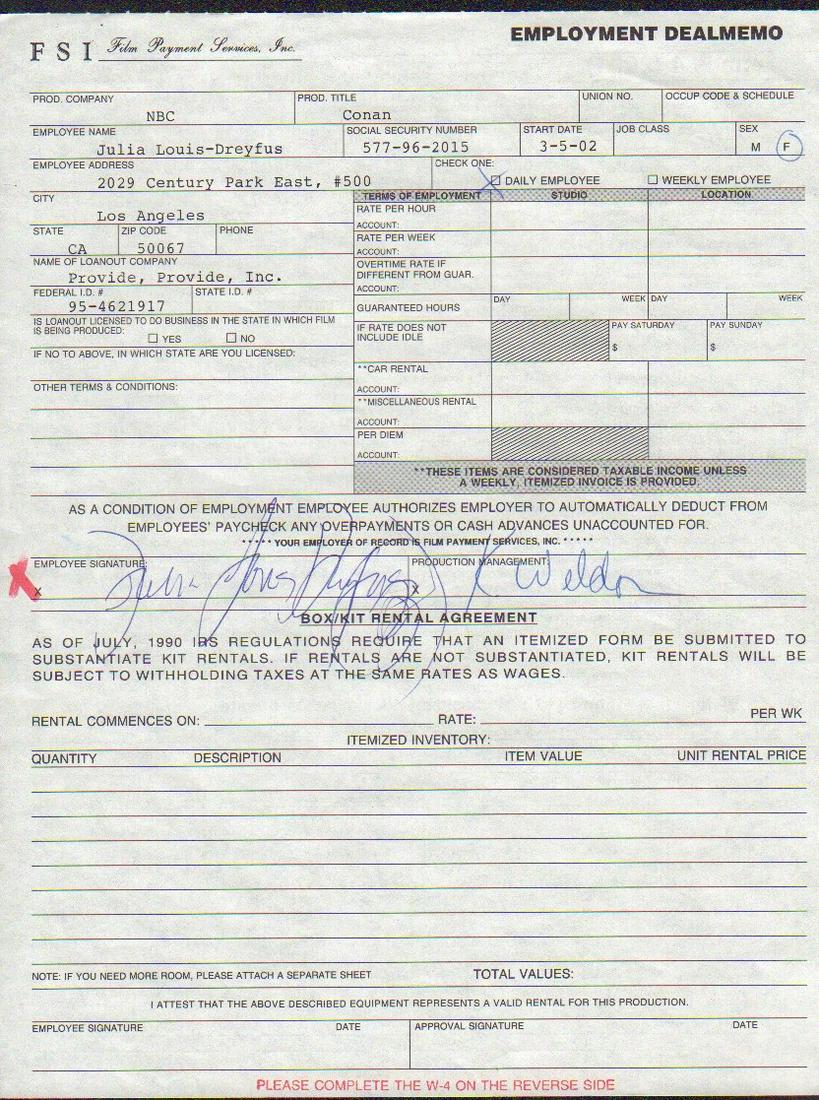 FSI Film Payment Services, Inc.
EMPLOYMENT DEALMEMO
PROD. COMPANY PROD. TITLE UNION NO. OCCUP CODE & SCHEDULE
NBC Conan
EMPLOYEE NAME SOCIAL SECURITY NUMBER START DATE JOB CLASS SEX
Julia Louis-Dreyfus [redacted] 3-5-02 M F
EMPLOYEE ADDRESS CHECK ONE:
2029 Century Park East, #500 DAILY EMPLOYEE WEEKLY EMPLOYEE
CITY
Los Angeles
STATE ZIP CODE PHONE
CA 50067
NAME OF LOANOUT COMPANY
Provide, Provide, Inc.
FEDERAL I.D. # STATE I.D. #
95-4621917
IS LOANOUT LICENSED TO DO BUSINESS IN THE STATE IN WHICH FILM
IS BEING PRODUCED:
YES NO
IF NO TO ABOVE, IN WHICH STATE ARE YOU LICENSED:
OTHER TERMS & CONDITIONS:
TERMS OF EMPLOYMENT STUDIO LOCATION
RATE PER HOUR
ACCOUNT:
RATE PER WEEK
ACCOUNT:
OVERTIME RATE IF
DIFFERENT FROM GUAR.
ACCOUNT:
GUARANTEED HOURS DAY WEEK DAY WEEK
IF RATE DOES NOT
INCLUDE IDLE
PAY SATURDAY PAY SUNDAY
$ $
**CAR RENTAL
ACCOUNT:
**MISCELLANEOUS RENTAL
ACCOUNT:
PER DIEM
ACCOUNT:
**THESE ITEMS ARE CONSIDERED TAXABLE INCOME UNLESS
A WEEKLY, ITEMIZED INVOICE IS PROVIDED.
AS A CONDITION OF EMPLOYMENT EMPLOYEE AUTHORIZES EMPLOYER TO AUTOMATICALLY DEDUCT FROM
EMPLOYEES' PAYCHECK ANY OVERPAYMENTS OR CASH ADVANCES UNACCOUNTED FOR.
* * * * * YOUR EMPLOYER OF RECORD IS FILM PAYMENT SERVICES, INC. * * * * *
EMPLOYEE SIGNATURE: PRODUCTION MANAGEMENT:
X Julia Louis Dreyfus X K Weldon
BOX/KIT RENTAL AGREEMENT
AS OF JULY, 1990 IRS REGULATIONS REQUIRE THAT AN ITEMIZED FORM BE SUBMITTED TO
SUBSTANTIATE KIT RENTALS. IF RENTALS ARE NOT SUBSTANTIATED, KIT RENTALS WILL BE
SUBJECT TO WITHHOLDING TAXES AT THE SAME RATES AS WAGES.
RENTAL COMMENCES ON: RATE: PER WK
ITEMIZED INVENTORY:
QUANTITY DESCRIPTION ITEM VALUE UNIT RENTAL PRICE
NOTE: IF YOU NEED MORE ROOM, PLEASE ATTACH A SEPARATE SHEET TOTAL VALUES:
I ATTEST THAT THE ABOVE DESCRIBED EQUIPMENT REPRESENTS A VALID RENTAL FOR THIS PRODUCTION.
EMPLOYEE SIGNATURE DATE APPROVAL SIGNATURE DATE
PLEASE COMPLETE THE W-4 ON THE REVERSE SIDE